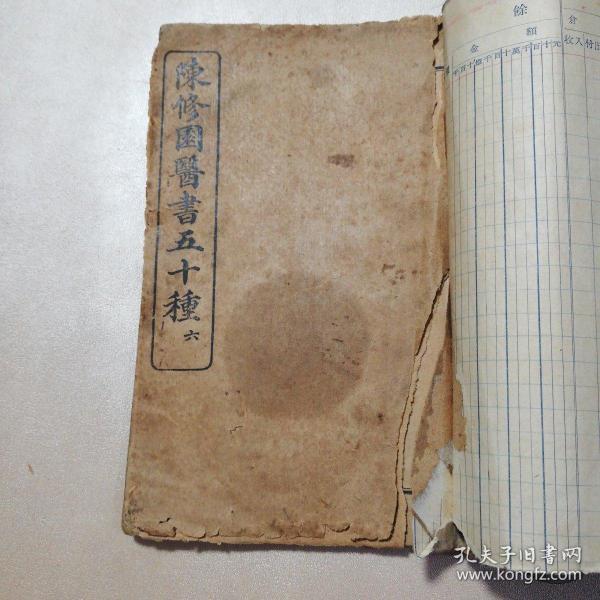 陳修園醫書五十種 六
餘
額金
元十百千萬十百千
分
收入付出
孔夫子旧书网
www.kongfz.com